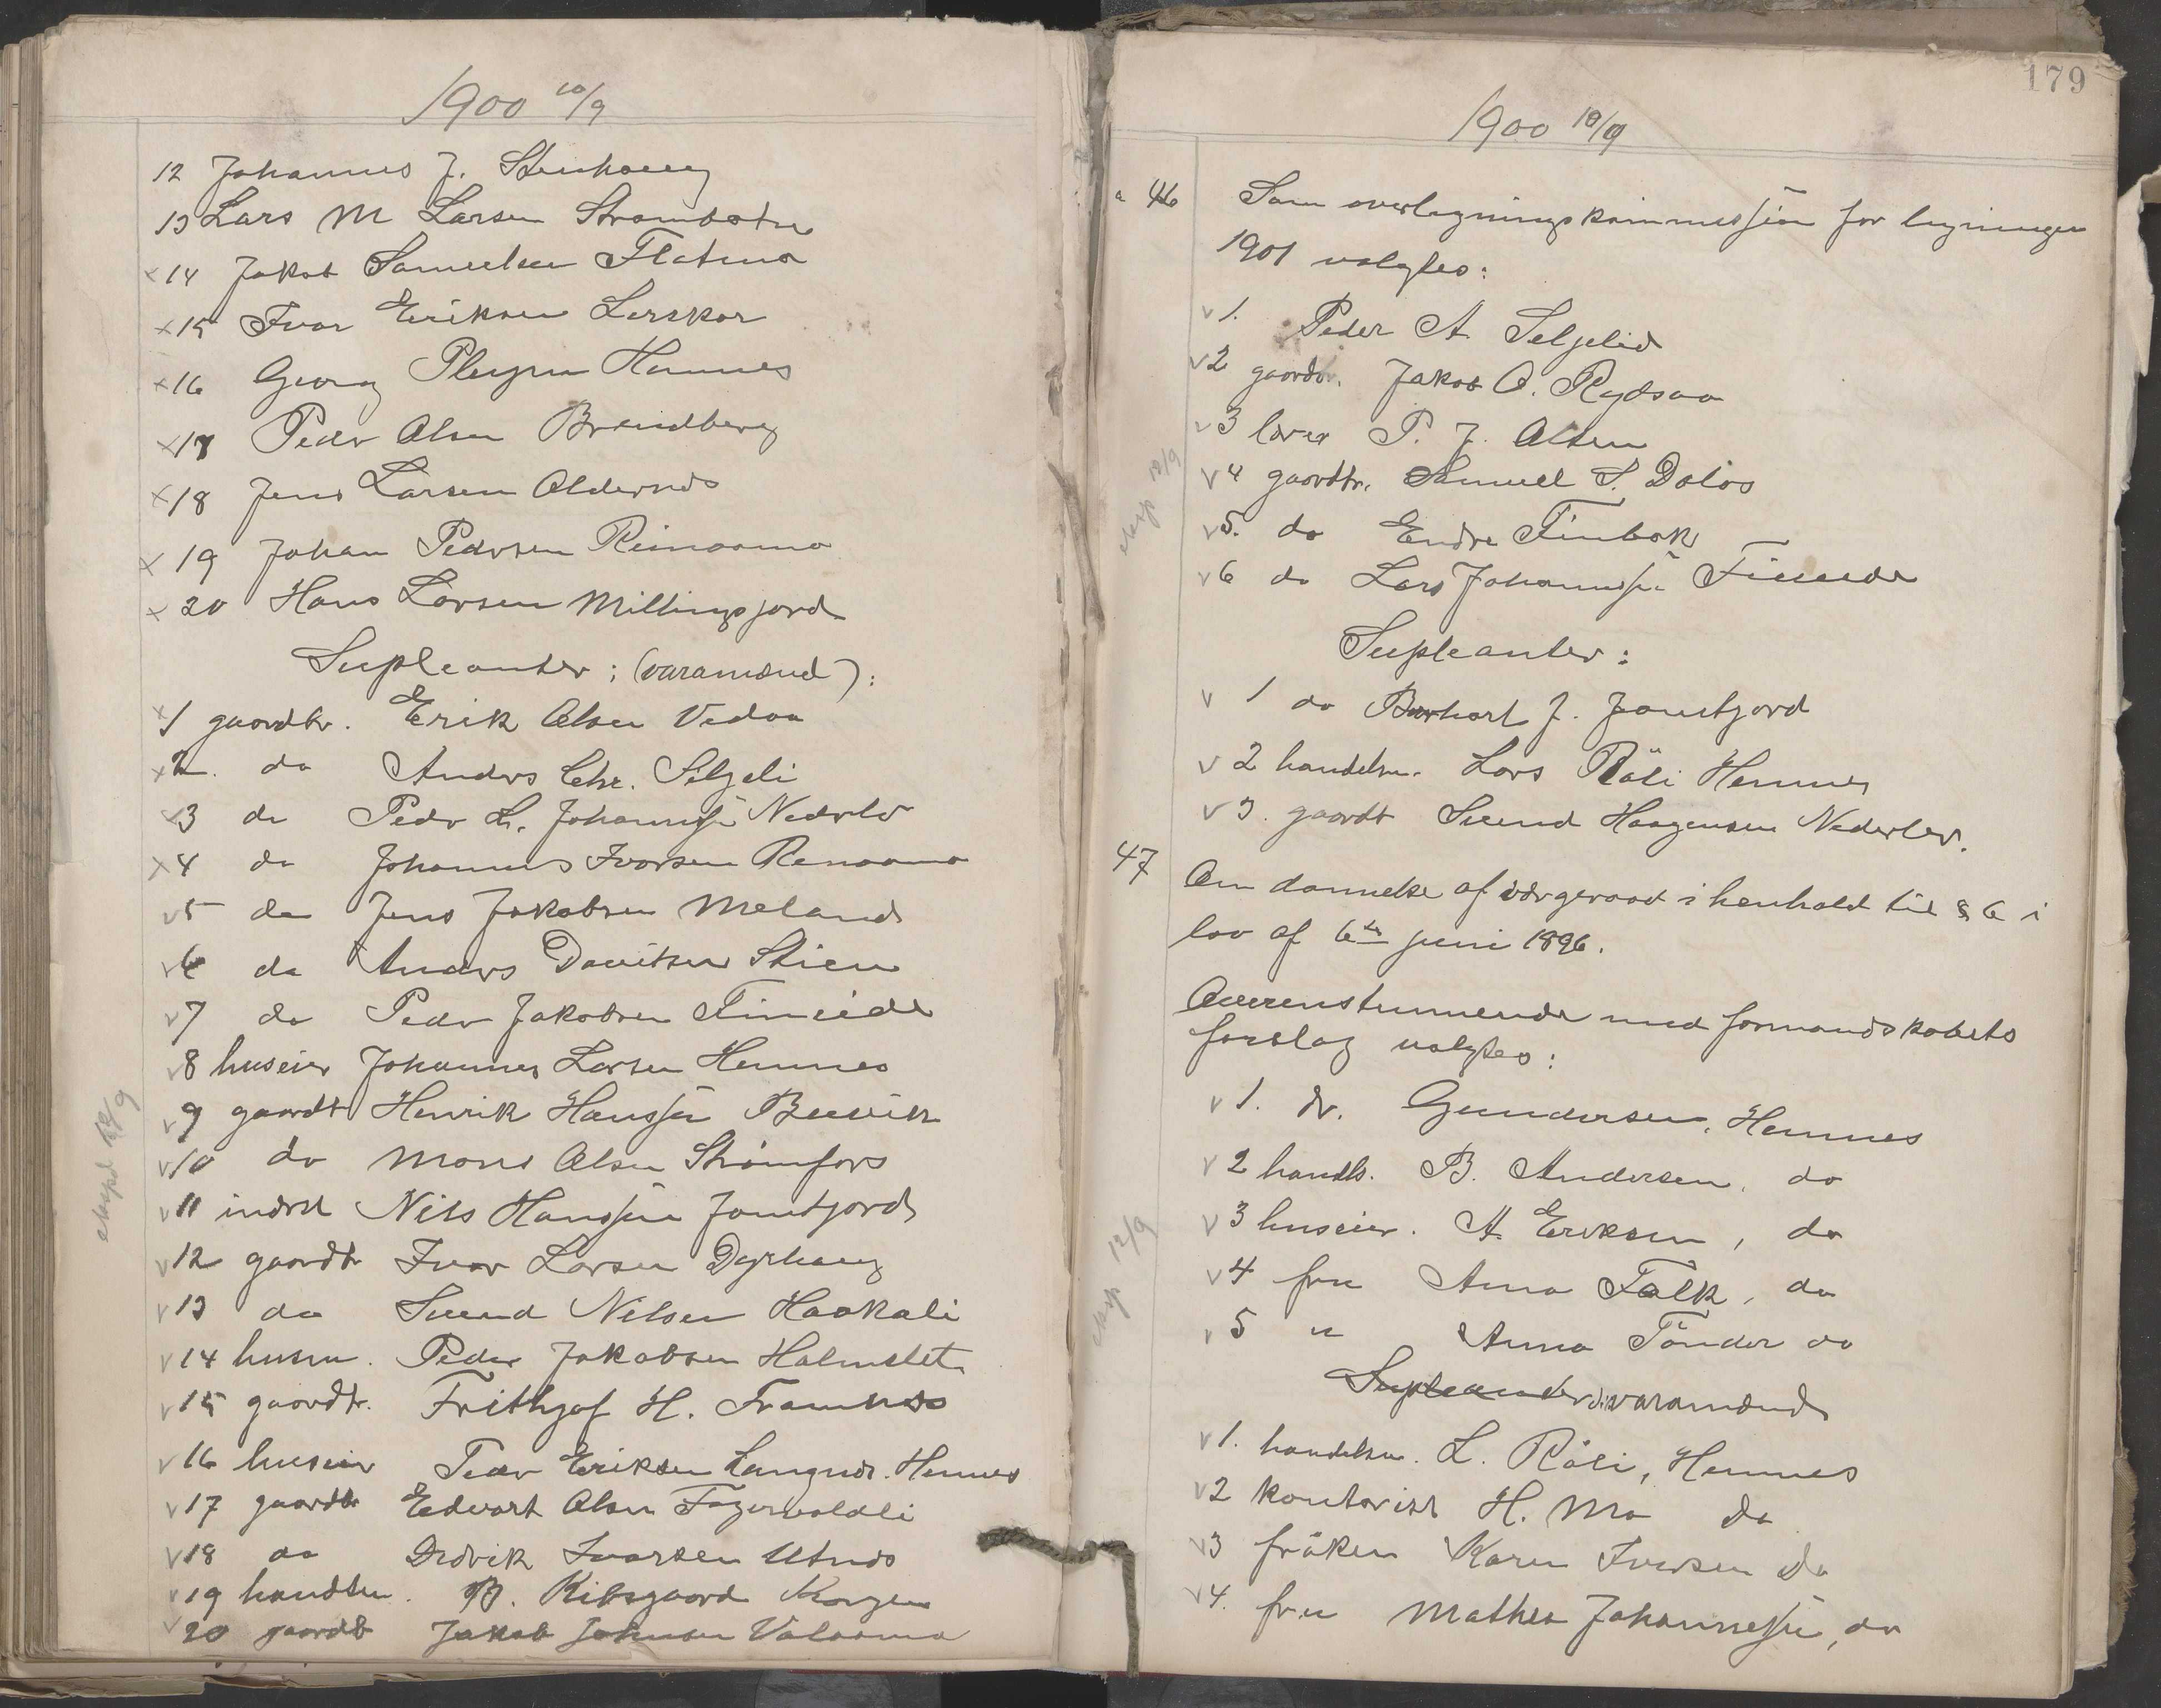 1900 10/9
12 Johannes J. Stenhaug
13 Lars M Larsen Strømbotn
14 Jakob Samuelsen Flatmo
15 Ivar Eriksen Lerskar
16 Georg Pleym Hemnes
17 Peder Olsen Brendberg
18 Jens Larsen Oldernes
19 Johan Pedersen Reinaamo
20 Hans Larsen Millingsjord
Supleanter; (varamænd):
1 gaardbr. Erik Olsen Vedaa
2. do Anders Chr. Seljeli
3 do Peder L. Johannessen Nederlev
4 do Johannes Ivarsen Renaamo
5 do Jens Jakobsen Meland
6 do Anders Davitsen Stien
7 do Peder Jakobsen Fineide
8 huseier Johannes Larsen Hemnes
9 gaardbr Henrik Hanssen
10 do Mons Olsen Strømfors
11 inderst Nils Hanssen Jamtjord
12 gaardbr Ivar Larsen Dyrhaug
13 do Svend Nilsen Haakali
14 husm. Peder Jakobsen Holmslet
15 gaardbr. Frithjof H. Framnes
16 huseier Peder Eriksen Langnes. Hemnes
17 gaardbr Edvart Olsen Fagervoldli
18 do Didrik Ivarsen Utnes
19 handlsm. B. Kibsgaard Korgen
20 gaardb Jakob Johnsen Valaamo
eksped 12/9
179
1900 10/9
46 Som overligningskommission for ligningen
1901 valgtes:
1. Peder A. Seljelid
2 gaardbr. Jakob O. Rydsaa
3 lærer P. J. Olsen
4 gaardbr. Samuel S. Dalos
5. do Endre Finbak
6 do Lars Johannessen Fineide
Supleanter:
1 do Burhart J. Jamtjord
2 handelsm. Lars Röli Hemnes
3. gaardb Svend Haagensen Nederlev.
eksp 12/9
47 Om dannelse af værgeraad i henhold til § 6 i
lov af 6te juni 1896.
Overensstemmende med formandskabets
forslag valgtes:
1. dr. Gundersen, Hemnes
2 handls. B. Andersen, do
3 huseier. A. Eriksen, do
4 fru Anna Falk, do
5 " Anna Tönder do
Supleanter varamænd
1. handelsm. L. Röli, Hemnes
2 kontorist H. Mo do
3 fröken Karen Iversen do
4. fru Mathea Johannessen, do
eksp 12/9